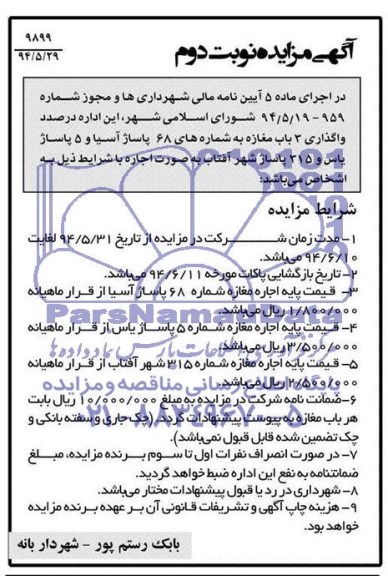 آگهی مزایده نوبت دوم
۹۸۹۹
۹۴/۵/۲۹
در اجرای ماده ۵ آیین نامه مالی شهرداری ها و مجوز شماره
۹۵۹ - ۹۴/۵/۱۹ شورای اسلامی شهر، این اداره درصدد
واگذاری ۳ باب مغازه به شماره های ۶۸ پاساژ آسیا و ۵ پاساژ
یاس و ۳۱۵ پاساژ شهر آفتاب به صورت اجاره با شرایط ذیل به
اشخاص می‌باشد:
شرایط مزایده
۱- مدت زمان شرکت در مزایده از تاریخ ۹۴/۵/۳۱ لغایت
۹۴/۶/۱۰ می‌باشد.
۲- تاریخ بازگشایی پاکات مورخه ۹۴/۶/۱۱ می‌باشد.
۳- قیمت پایه اجاره مغازه شماره ۶۸ پاساژ آسیا از قرار ماهیانه
۱/۸۰۰/۰۰۰ ریال می‌باشد.
۴- قیمت پایه اجاره مغازه شماره ۵ پاساژ یاس از قرار ماهیانه
۳/۵۰۰/۰۰۰ ریال می‌باشد.
۵- قیمت پایه اجاره مغازه شماره ۳۱۵ شهر آفتاب از قرار ماهیانه
۲/۵۰۰/۰۰۰ ریال می‌باشد.
۶- ضمانت نامه شرکت در مزایده به مبلغ ۱۰/۰۰۰/۰۰۰ ریال بابت
هر باب مغازه به پیوست پیشنهادات گردد. (چک جاری و سفته بانکی و
چک تضمین شده قابل قبول نمی‌باشد).
۷- در صورت انصراف نفرات اول تا سوم برنده مزایده، مبلغ
ضمانتنامه به نفع این اداره ضبط خواهد گردید.
۸- شهرداری در رد یا قبول پیشنهادات مختار می‌باشد.
۹- هزینه چاپ آگهی و تشریفات قانونی آن بر عهده برنده مزایده
خواهد بود.
بابک رستم پور - شهردار بانه
ParsNamadData